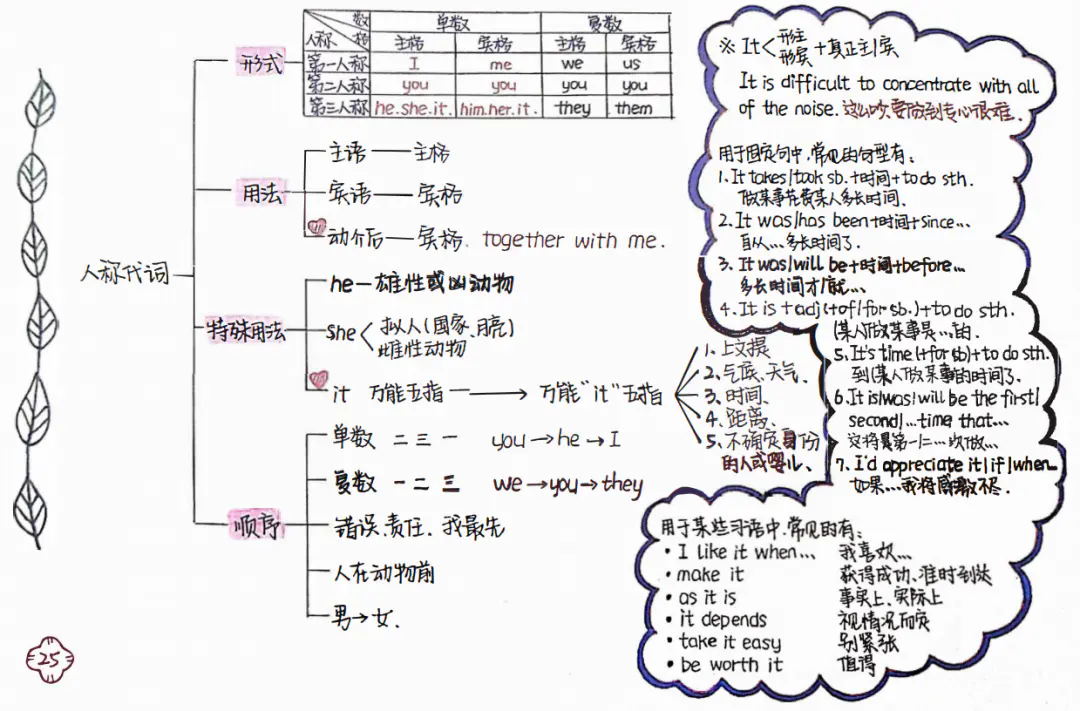 人称代词
形式
数
格
人称
单数
复数
主格 宾格 主格 宾格
第一人称 I me we us
第二人称 you you you you
第三人称 he.she.it. him.her.it. they them
用法
主语——主格
宾语——宾格
动介后——宾格. together with me.
特殊用法
he—雄性或凶动物
she< 拟人(国家、月亮)
雌性动物
it 万能五指 ——→ 万能"it"五指
1、上文提
2、气候、天气、
3、时间、
4、距离、
5、不确定身份
的人或婴儿、
顺序
单数 二三一 you→he→I
复数 一二三 we→you→they
错误、责任、我最先
人在动物前
男→女.
25
※ It< 形主
形宾 +真正主/宾
It is difficult to concentrate with all
of the noise. 这么吵,要做到专心很难.
用于固定句中,常见的句型有:
1.It takes/took sb.+时间+to do sth.
做某事花费某人多长时间.
2.It was/has been+时间+since...
自从...多长时间了.
3.It was/will be+时间+before...
多长时间才/就...
4.It is +adj(+of/for sb.)+to do sth.
(某人)做某事是...的.
5.It's time(+for sb)+to do sth.
到(某人)做某事的时间了.
6.It is/was/will be the first/
second/...time that...
这将是第一/二...次做...
7.I'd appreciate it/if/when...
如果...我将感激不尽.
用于某些习语中,常见的有:
• I like it when... 我喜欢...
• make it 获得成功、准时到达
• as it is 事实上、实际上
• it depends 视情况而定
• take it easy 别紧张
• be worth it 值得